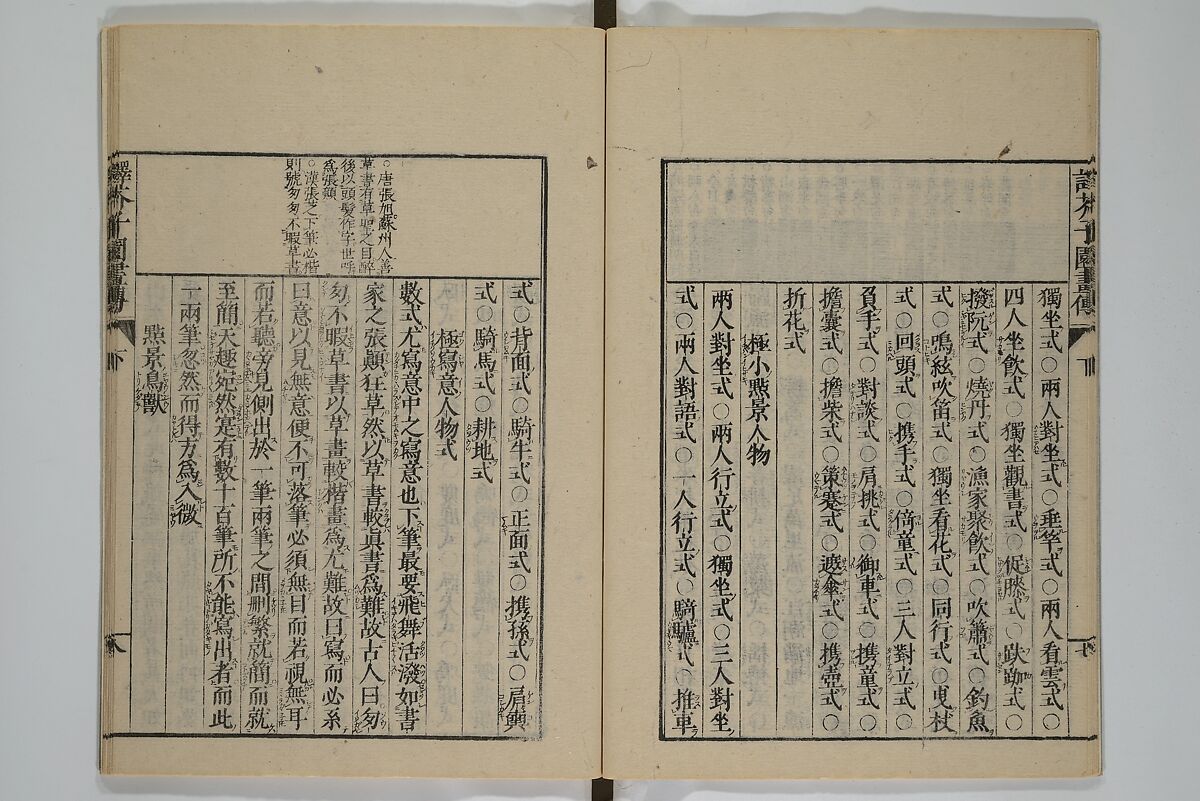 獨坐式○兩人對坐式○垂竿式○兩人看雲式○
四人坐飲式○獨坐觀書式○促膝式○趺跏式○
撥阮式○燒丹式○漁家聚飲式○吹簫式○釣魚
式○鳴絃吹笛式○獨坐看花式○同行式○曳杖
式○回頭式○携手式○倚童式○三人對立式○
負手式○對談式○肩挑式○御車式○携童式○
擔囊式○擔柴式○策蹇式○遮傘式○携壺式○
折花式
極小㸃景人物
兩人對坐式○兩人行立式○獨坐式○三人對坐
式○兩人對語式○一人行立式○騎驢式○推車
式○背面式○騎牛式○正面式○携孫式○肩輿
式○騎馬式○耕地式
極寫意人物式
數式尤寫意中之寫意也下筆最要飛舞活潑如書
家之張顛狂草然以草書較眞書爲難故古人曰匆
匆不暇草書以草畫較楷畫爲尤難故曰寫而必系
曰意以見無意便不可落筆必須無目而若視無耳
而若聽旁見側出於一筆兩筆之間刪繁就簡而就
至簡天趣宛然寔有數十百筆所不能寫出者而此
一兩筆忽然而得方爲入微
㸃景鳥獸
○唐張旭蘇州人善
草書有草聖之目醉
後以頭髮作字世呼
爲張顛
○漢張芝下筆必楷
則號匆匆不暇草書
譯芥子園畫傳